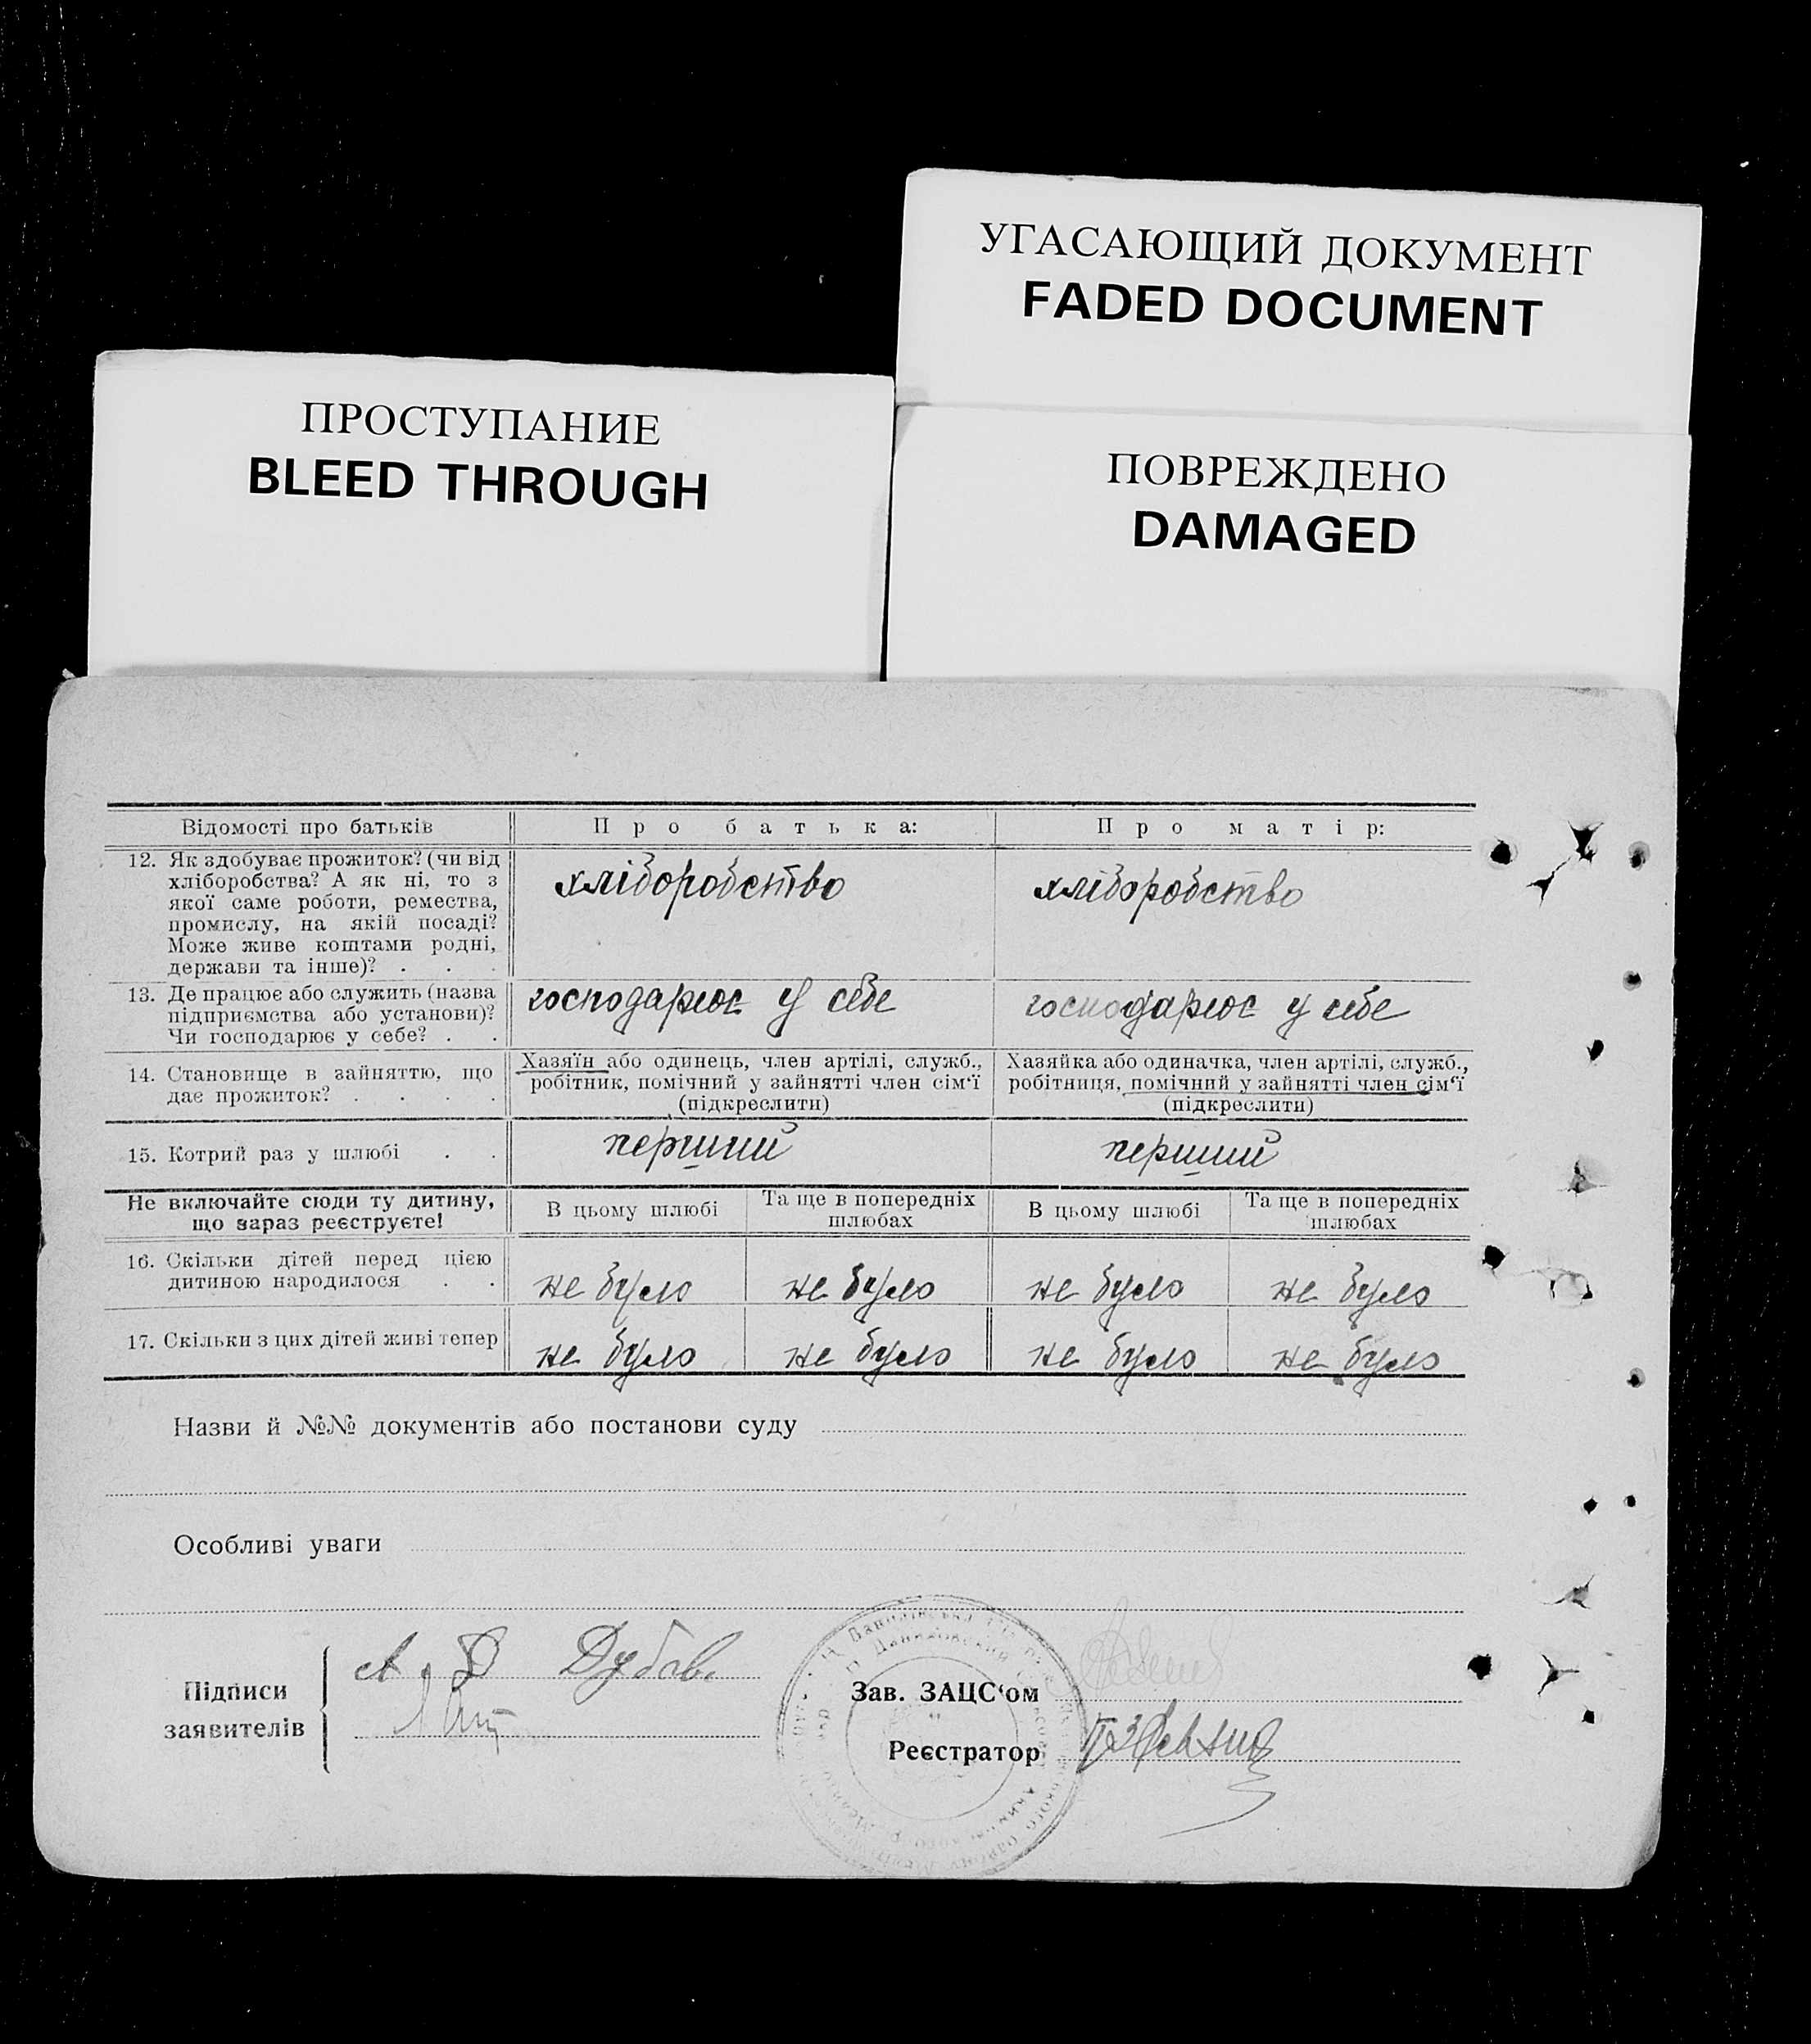 УГАСАЮЩИЙ ДОКУМЕНТ
FADED DOCUMENT
ПРОСТУПАНИЕ
BLEED THROUGH
ПОВРЕЖДЕНО
DAMAGED
Відомості про батьків
Про батька:
Про матір:
12. Як здобуває прожиток? (чи від
хліборобства? А як ні, то з
якої саме роботи, ремества,
промислу, на якій посаді?
Може живе коштами родні,
держави та інше)? . . .
хліборобство
хліборобство
13. Де працює або служить (назва
підприємства або установи)?
Чи господарює у себе? . .
господарює у себе
господарює у себе
14. Становище в зайняттю, що
дає прожиток? . . . .
Хазяїн або одинець, член артілі, служб.,
робітник, помічний у зайнятті член сім‘ї
(підкреслити)
Хазяйка або одиначка, член артілі, служб.,
робітниця, помічний у зайнятті член сім‘ї
(підкреслити)
15. Котрий раз у шлюбі . .
перший
перший
Не включайте сюди ту дитину,
що зараз реєструєте!
В цьому шлюбі
Та ще в попередніх
шлюбах
В цьому шлюбі
Та ще в попередніх
шлюбах
16. Скільки дітей перед цією
дитиною народилося . .
не було
не було
не було
не було
17. Скільки з цих дітей живі тепер
не було
не було
не було
не було
Назви й №№ документів або постанови суду
Особливі уваги
Підписи
заявителів
Зав. ЗАЦС‘ом
Реєстратор